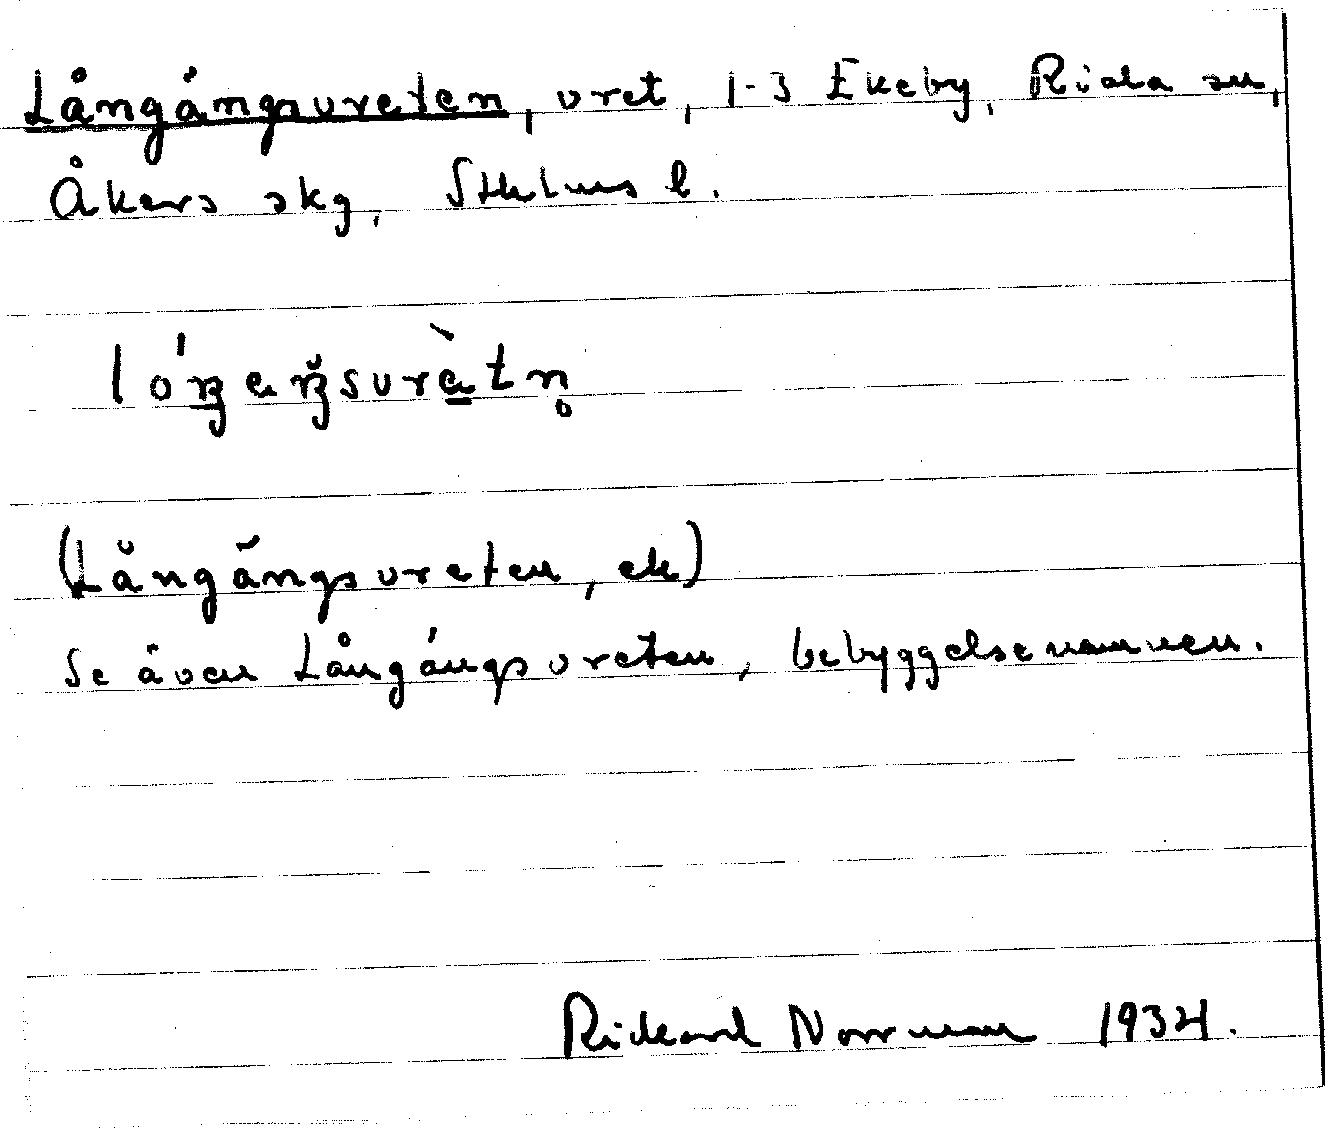 Långängsvreten, vret, 1-3 Ekeby, Riala sn,
Åkers skg, Sthlms l.
(Långängsvreten, ek)
Se även Långängsvreten, bebyggelsenamnen.
Rickard Norrman 1934.